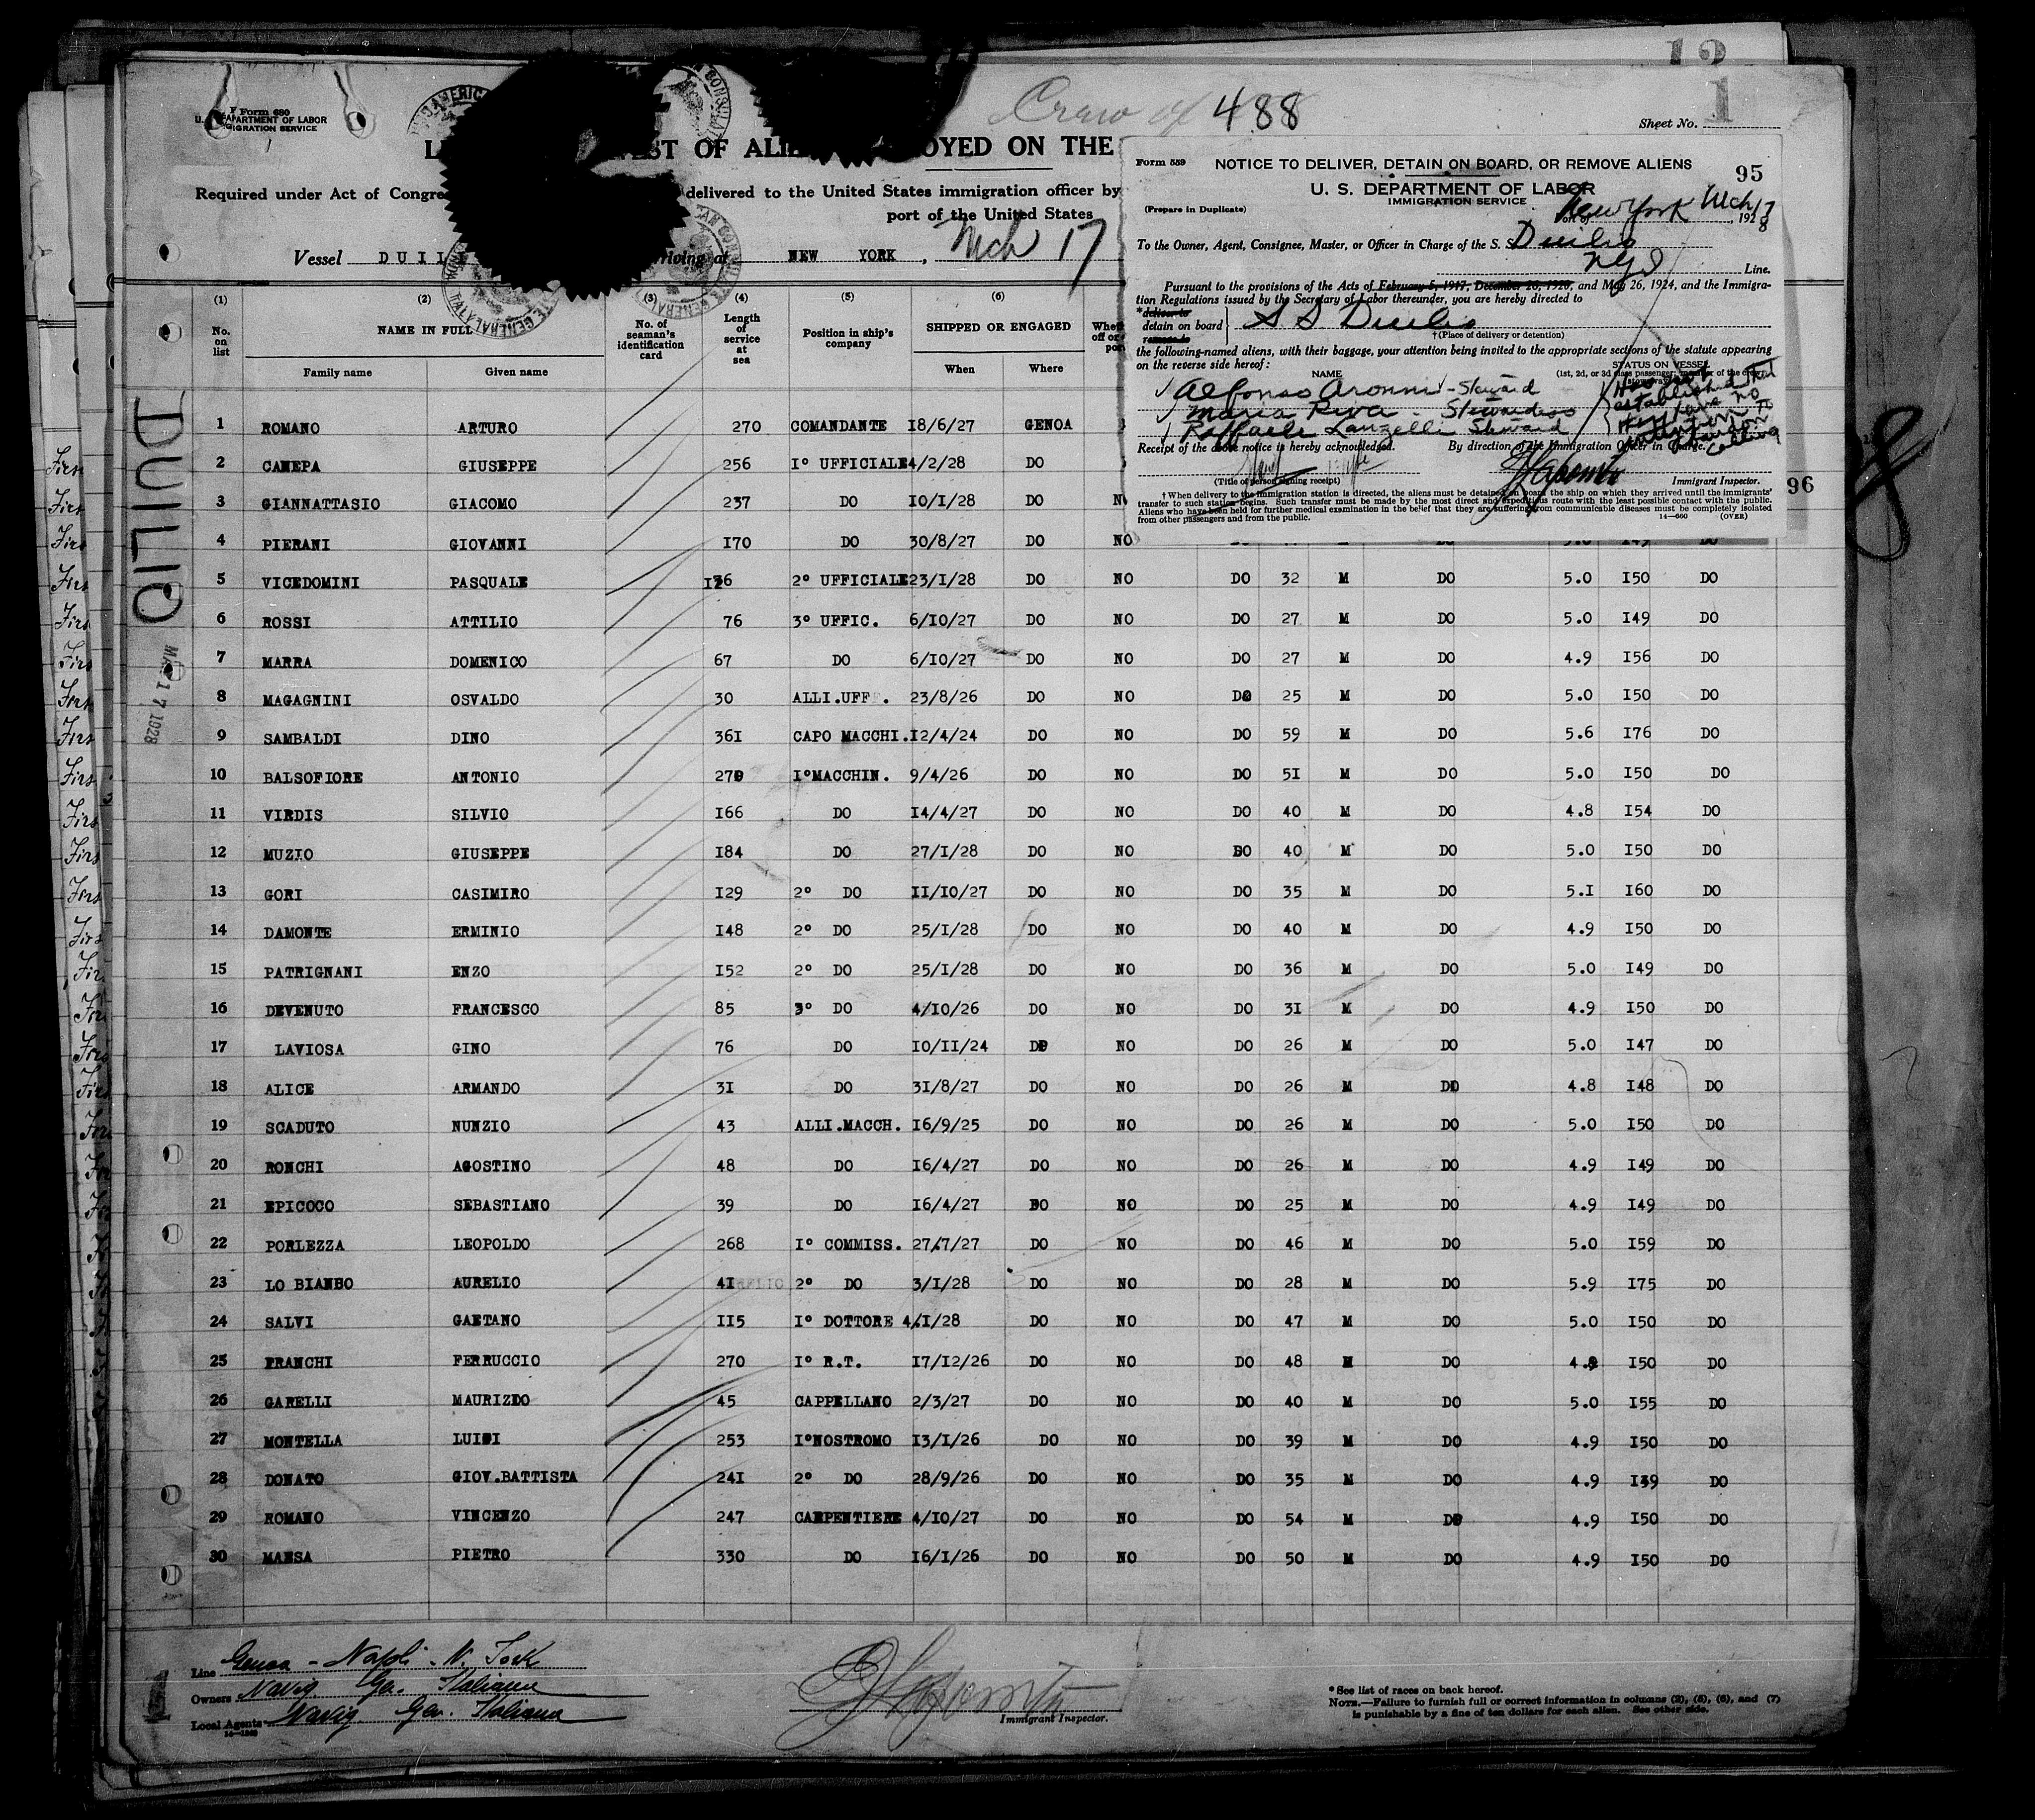 12
1
Form 680
U. S. DEPARTMENT OF LABOR
IMMIGRATION SERVICE
Crew of 488
Sheet No.
EST OF ALIE OYED ON THE
Required under Act of Congre delivered to the United States immigration officer by
port of the United States
Vessel DUILI riving at NEW YORK, Mch 17
Form 559
NOTICE TO DELIVER, DETAIN ON BOARD, OR REMOVE ALIENS
95
U. S. DEPARTMENT OF LABOR
IMMIGRATION SERVICE
(Prepare in Duplicate)
Port of New York Mch 17, 1928
To the Owner, Agent, Consignee, Master, or Officer in Charge of the S. S. Duilio
Line.
Pursuant to the provisions of the Acts of February 5, 1917, December 26, 1920, and May 26, 1924, and the Immigra-
tion Regulations issued by the Secretary of Labor thereunder, you are hereby directed to
*deliver to
detain on board } S S Duilio
remove to
†(Place of delivery or detention)
the following-named aliens, with their baggage, your attention being invited to the appropriate sections of the statute appearing
on the reverse side hereof:
NAME
STATUS ON VESSEL
(1st, 2d, or 3d class passenger; member of the crew; stowaway)
Alfonso Aronni - Steward
Maria Riva - Stewardess
Raffaele Lanzelli Steward
Has not
established that
they have no
intention to
abandon
calling
Receipt of the above notice is hereby acknowledged.
By direction of the Immigration Officer in Charge.
(Title of person signing receipt)
Immigrant Inspector.
†When delivery to the immigration station is directed, the aliens must be detained on board the ship on which they arrived until the immigrants'
transfer to such station begins. Such transfer must be made by the most direct and expeditious route with the least possible contact with the public.
Aliens who have been held for further medical examination in the belief that they are suffering from communicable diseases must be completely isolated
from other passengers and from the public.
14—660 (OVER)
96
(1) (2) (3) (4) (5) (6)
No. on list
NAME IN FULL
Family name Given name
No. of seaman's identification card
Length of service at sea
Position in ship's company
SHIPPED OR ENGAGED
When Where
DUILIO
MAR 17 1928
1 ROMANO ARTURO 270 COMANDANTE I8/6/27 GENOA
2 CANEPA GIUSEPPE 256 I° UFFICIALE 4/2/28 DO
3 GIANNATTASIO GIACOMO 237 DO IO/I/28 DO N
4 PIERANI GIOVANNI I70 DO 30/8/27 DO NO
5 VICEDOMINI PASQUALE I26 2° UFFICIALE 23/I/28 DO NO DO 32 M DO 5.0 I50 DO
6 ROSSI ATTILIO 76 3° UFFIC. 6/IO/27 DO NO DO 27 M DO 5.0 I49 DO
7 MARRA DOMENICO 67 DO 6/IO/27 DO NO DO 27 M DO 4.9 I56 DO
8 MAGAGNINI OSVALDO 30 ALLI.UFF . 23/8/26 DO NO DO 25 M DO 5.0 I50 DO
9 SAMBALDI DINO 36I CAPO MACCHI. I2/4/24 DO NO DO 59 M DO 5.6 I76 DO
10 BALSOFIORE ANTONIO 279 I°MACCHIN. 9/4/26 DO NO DO 5I M DO 5.0 I50 DO
11 VIRDIS SILVIO I66 DO I4/4/27 DO NO DO 40 M DO 4.8 I54 DO
12 MUZIO GIUSEPPE I84 DO 27/I/28 DO NO DO 40 M DO 5.0 I50 DO
13 GORI CASIMIRO I29 2° DO II/IO/27 DO NO DO 35 M DO 5.I I60 DO
14 DAMONTE ERMINIO I48 2° DO 25/I/28 DO NO DO 40 M DO 4.9 I50 DO
15 PATRIGNANI ENZO I52 2° DO 25/I/28 DO NO DO 36 M DO 5.0 I49 DO
16 DEVENUTO FRANCESCO 85 3° DO 4/IO/26 DO NO DO 3I M DO 4.9 I50 DO
17 LAVIOSA GINO 76 DO IO/II/24 DO NO DO 26 M DO 5.0 I47 DO
18 ALICE ARMANDO 3I DO 3I/8/27 DO NO DO 26 M DO 4.8 I48 DO
19 SCADUTO NUNZIO 43 ALLI.MACCH. I6/9/25 DO NO DO 26 M DO 5.0 I50 DO
20 RONCHI AGOSTINO 48 DO I6/4/27 DO NO DO 26 M DO 4.9 I49 DO
21 EPICOCO SEBASTIANO 39 DO I6/4/27 DO NO DO 25 M DO 4.9 I49 DO
22 PORLEZZA LEOPOLDO 268 I° COMMISS. 27/7/27 DO NO DO 46 M DO 5.0 I59 DO
23 LO BIANHO AURELIO 4I 2° DO 3/I/28 DO NO DO 28 M DO 5.9 I75 DO
24 SALVI GAETANO II5 I° DOTTORE 4/I/28 DO NO DO 47 M DO 5.0 I50 DO
25 FRANCHI FERRUCCIO 270 I° R.T. I7/I2/26 DO NO DO 48 M DO 4.9 I50 DO
26 GARELLI MAURIZIO 45 CAPPELLANO 2/3/27 DO NO DO 40 M DO 5.0 I55 DO
27 MONTELLA LUIGI 253 I°NOSTROMO I3/I/26 DO NO DO 39 M DO 4.9 I50 DO
28 DONATO GIOV.BATTISTA 24I 2° DO 28/9/26 DO NO DO 35 M DO 4.9 I39 DO
29 ROMANO VINCENZO 247 CARPENTIERE 4/IO/27 DO NO DO 54 M DO 4.9 I50 DO
30 MANSA PIETRO 330 DO I6/I/26 DO NO DO 50 M DO 4.9 I50 DO
Line Genoa - Napoli - N. York
Owners Navig. Gen. Italiana
Local Agents Navig. Gen. Italiana
Immigrant Inspector.
*See list of races on back hereof.
NOTE.—Failure to furnish full or correct information in columns (2), (5), (6), and (7)
is punishable by a fine of ten dollars for each alien. See other side.
1